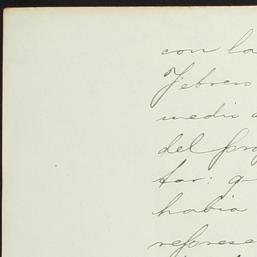 con la
Febrero
medio
del pro
tar: q
habia
represe